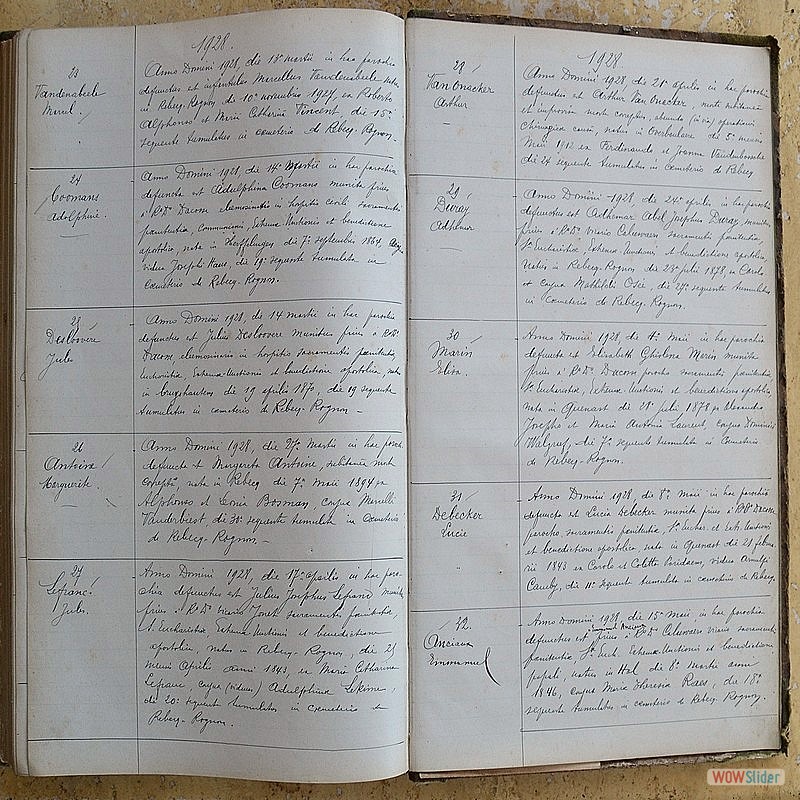 1928.
23
Vandenabeele
Marcel.
Anno Domini 1928, die 13ª martii in hac parochia
defunctus est infantulus Marcellus Vandenabeele natus
in Rebecq-Rognon de 10ª novembris 1927, ex Roberto
Alphonso et Maria Catharina Vincent, die 15ª
sequente tumulatus in cemeterio de Rebecq-Rognon.
24
Coomans
Adolphine.
Anno Domini 1928, die 14ª Martii in hac parochia
defuncta est Adulphina Coomans munita prius
a Rº Dº Dacom elemosinario in hospitio sacramentis
paenitentia, Communione, Extrema Unctionis et benedictione
apostolica, nata in die 7ª septembris 1864
vidua Josephi Haus, die 19ª sequente tumulata in
cemeterio de Rebecq-Rognon.
25
Desloovère
Jules
Anno Domini 1928, die 14 martii in hac parochia
defunctus est Julius Desloovere munitus prius a RºDº
Dacom elemosinario in hospitio sacramentis paenitentia,
Eucharistia, Extrema Unctionis et benedictione apostolica natus
in die 19 aprilis 1870, die 19 sequente
tumulatus in cemeterio de Rebecq-Rognon
26
Antoine
Marguerite.
Anno Domini 1928, die 27ª Martii in hac parochia
defuncta est Margareta Antoine, subitanea morte
correpta, nata in Rebecq die 7ª maii 1894 ex
Alphonso et Leonia Bosman, conjux Marcelli
Vanderbiest, die 30ª sequente tumulata in cemeterio
de Rebecq-Rognon
27
Lefranc
Jules.
Anno Domini 1928, die 17ª aprilis in hac paro-
chia defunctus est Julius Josephus Lefranc munitus
prius a Rº Dº vicario sacramentis paenitentia,
S. Eucharistia, Extrema Unctionis et benedictione
apostolica, natus in Rebecq-Rognon, die 25
mensis Aprilis anni 1843, ex Maria Catharina
Lefranc, conjux (viduus) Adulphina
die 20ª sequente tumulatus in cemeterio de
Rebecq-Rognon.
1928
28
Van Onacker
Arthur
Anno Domini 1928, die 21ª aprilis in hac parochia
defunctus est Arthur Van Onacker, morte subitanea
et improvisa morte correptus, operationis
chirurgica causa, natus in Overboelaere die 5ª mensis
Maii 1912 ex Ferdinando et Joanna Vandenbossche
die 24 sequente tumulatus in cemeterio de Rebecq
29
Duray
Adhémar
Anno Domini 1928, die 24ª aprilis in hac parochia
defunctus est Adhemar Abel Josephus Duray, munitus
prius a RºDº Vicario sacramentis paenitentia,
Sª Eucharistia, Extrema Unctionis et benedictione apostolica,
natus in Rebecq-Rognon die 28ª julii 1878, ex Carolo
et conjux Mathildis die 27ª sequente tumulatus
in cemeterio de Rebecq-Rognon.
30
Marin
Elisa.
Anno Domini 1928, die 4ª Maii in hac parochia
defuncta est Elisabeth Ghislena Marin munita
prius a RºDº Dacom parocho sacramentis paenitentia,
Sª Eucharistia, Extrema Unctionis et benedictione apostolica
nata in Quenast die 28ª julii 1878 ex Alexandro
Josepho et Maria Antonia Laurent, conjux Dominici
Walgraef, die 7ª sequente tumulata in cemeterio
de Rebecq-Rognon.
31
Debecker
Lucie
Anno Domini 1928, die 8ª Maii in hac parochia
defuncta est Lucia Debecker munita prius a RºDº Dacom
parocho, sacramentis paenitentia, Sª Euchar. et Ext. Unctionis
et benedictione apostolica, nata in Quenast die 21 febru-
arii 1843 ex Carolo et Coletta vidua
die 11ª sequente tumulata in cemeterio de Rebecq.
42.
Anciaux
Emmanuel
Anno Domini 1928, die 15ª Maii, in hac parochia
defunctus est prius a RºDº vicario sacramentis
paenitentia, Sª Euch. Extrema Unctionis et benedictione
papali, natus in Hal die 8ª Martii anni
1846, conjux Maria Theresia Raes, die 18ª
sequente tumulatus in cemeterio de Rebecq Rognon.
WOWSlider